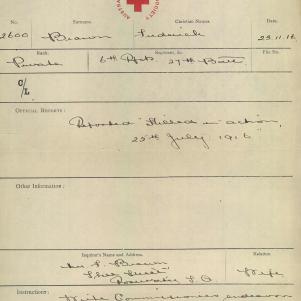 No. Surname. Christian Names. Date.
2600 Brown Frederick 23.11.16
Rank. Regiment, &c. File No.
Private 6th Rfts 27th Batt
C/L
OFFICIAL REPORTS:
Reported "Killed in action,
25th July 1916"
Other Information:
Inquirer's Name and Address. Relation
Mrs. F. Brown
Street Wife
S.A.
Instructions:
Write Commissioner